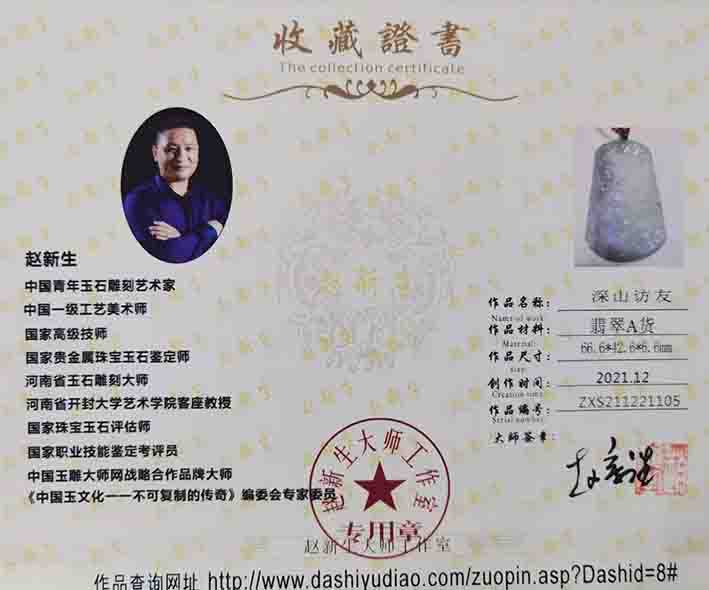 收藏證書
The collection certificate
赵新生
中国青年玉石雕刻艺术家
中国一级工艺美术师
国家高级技师
国家贵金属珠宝玉石鉴定师
河南省玉石雕刻大师
河南省开封大学艺术学院客座教授
国家珠宝玉石评估师
国家职业技能鉴定考评员
中国玉雕大师网战略合作品牌大师
《中国玉文化——不可复制的传奇》编委会专家委员
作品名称: 深山访友
Name of work
作品材料: 翡翠A货
Material:
作品尺寸: 66.6*42.6*6.6mm
size:
创作时间: 2021.12
Creation time:
作品编号: ZXS211221105
Serial number:
大师签章:
赵新生
赵新生大师工作室
专用章
赵新生大师工作室
作品查询网址 http://www.dashiyudiao.com/zuopin.asp?Dashid=8#